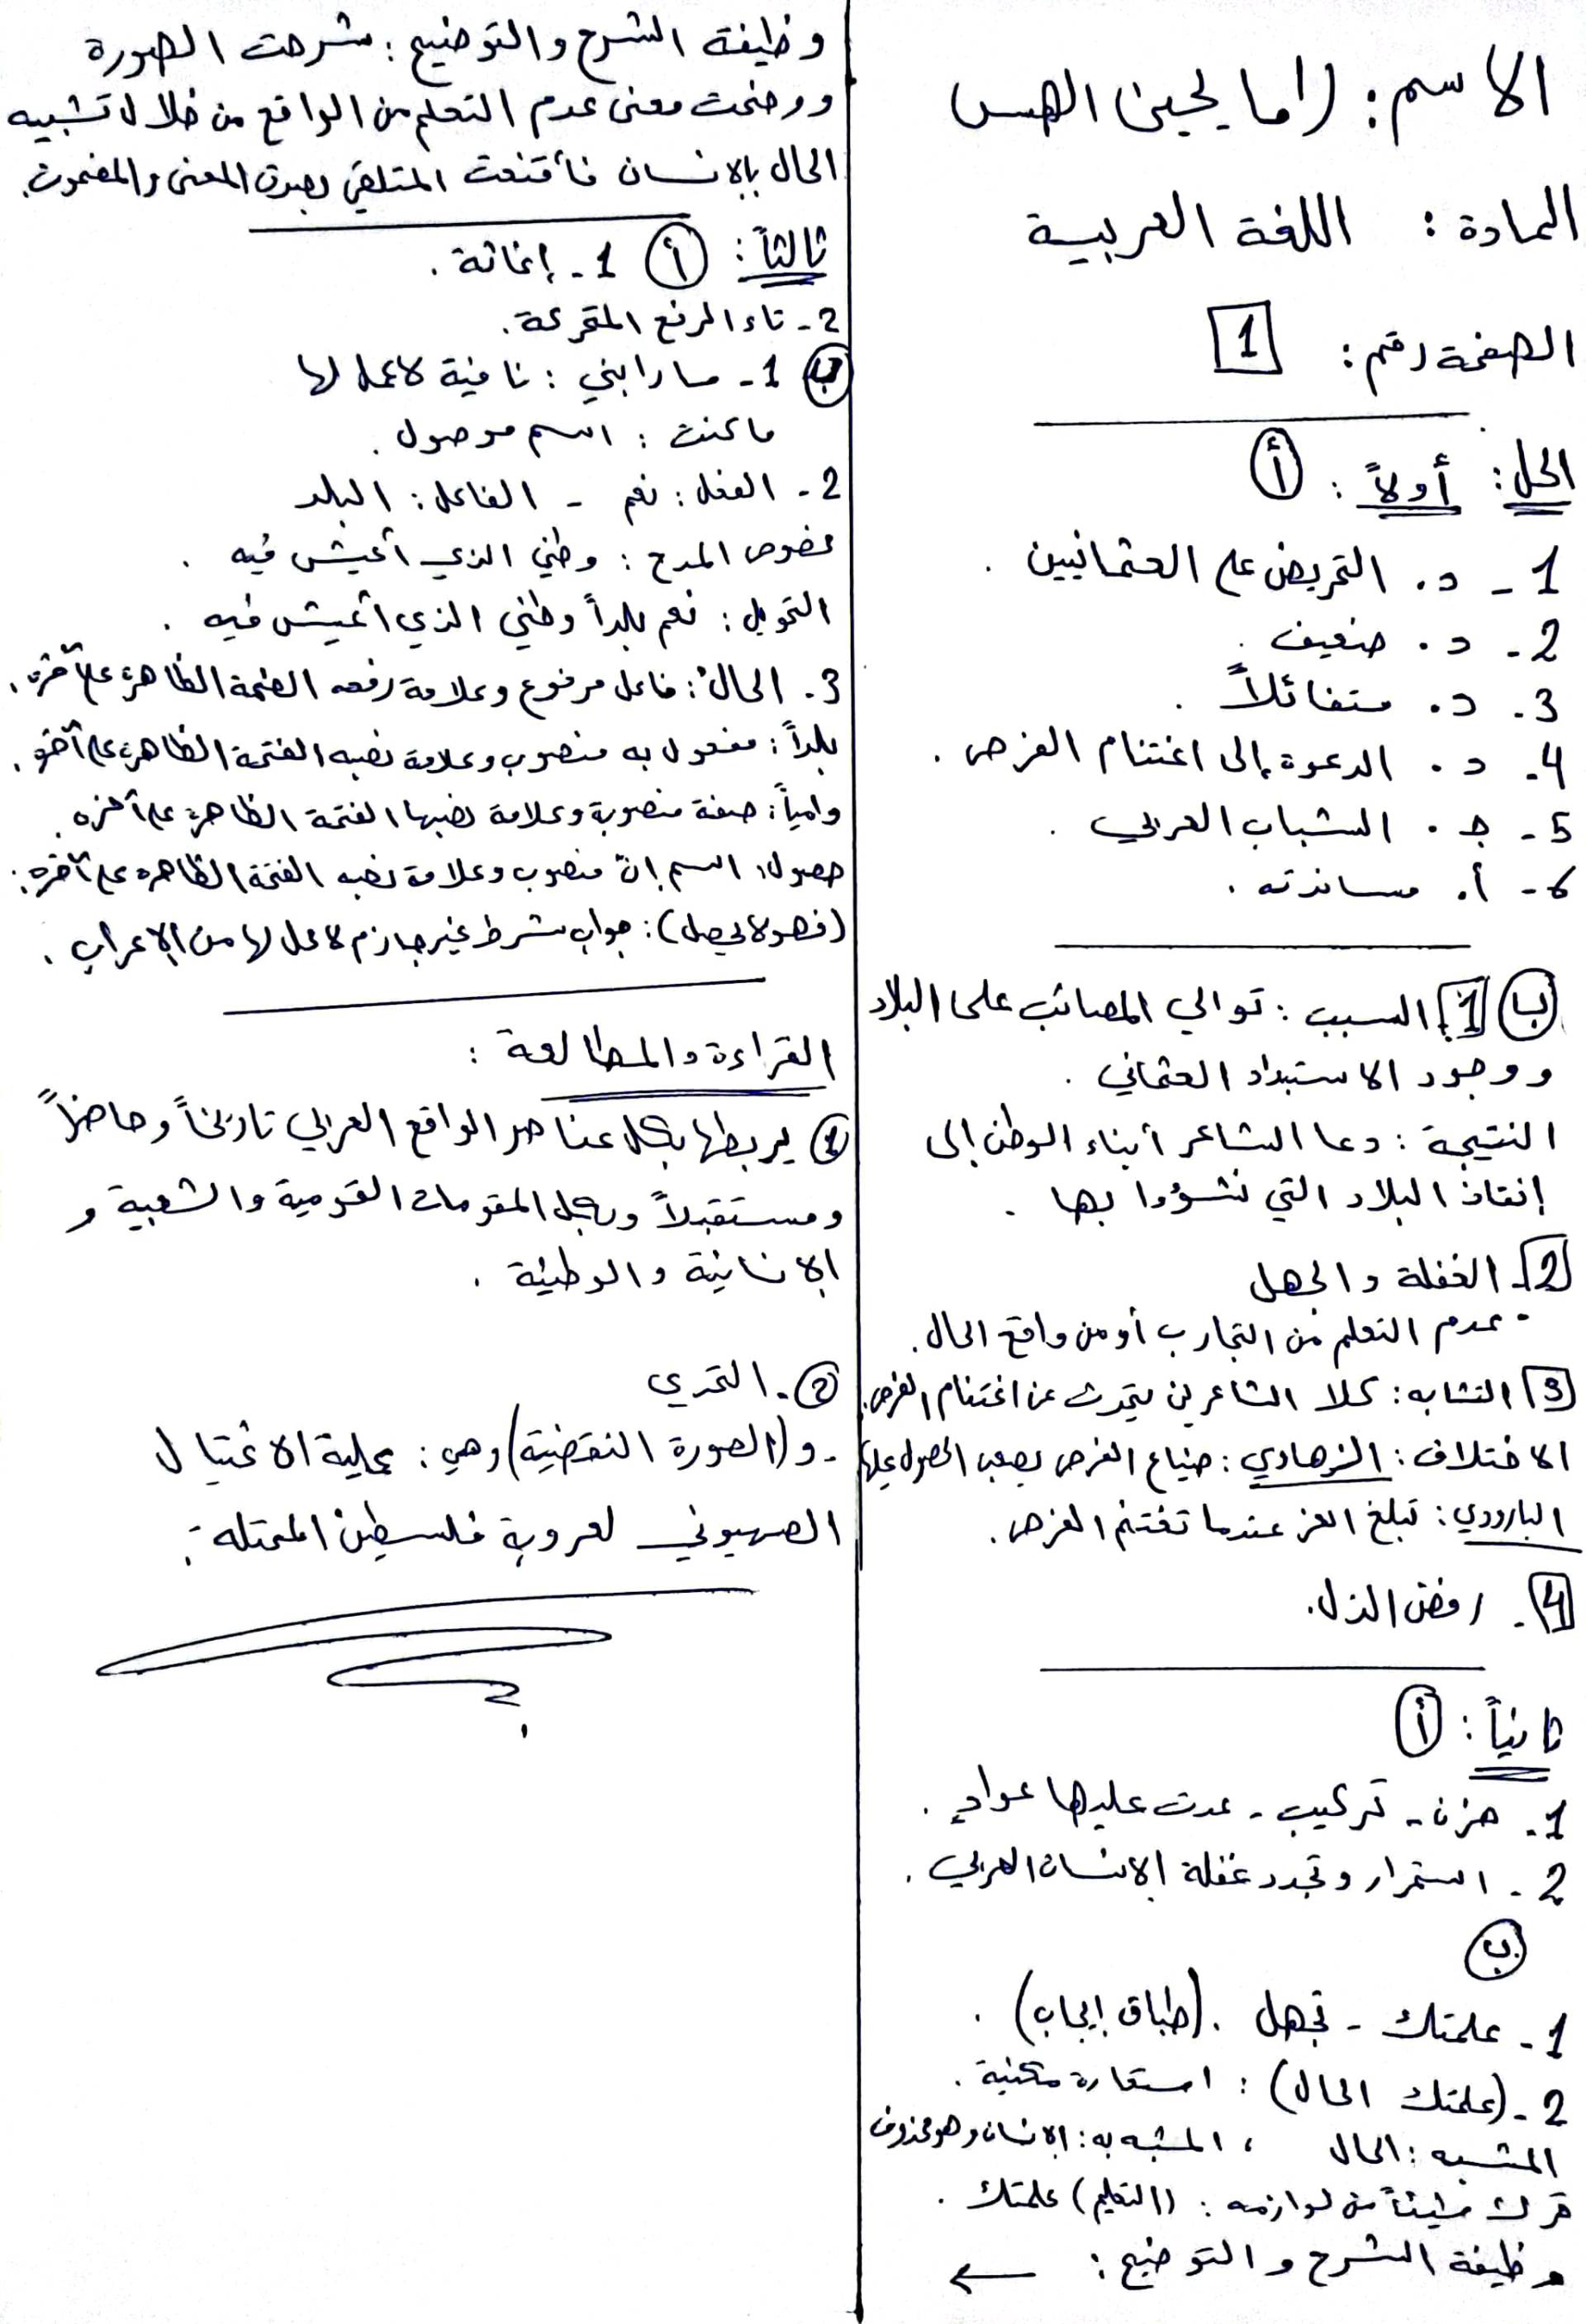 الاسم: راما يحيى الهس
المادة: اللغة العربية
الصفحة رقم: 1
الحل: أولاً: أ
1 - د. التحريض على العثمانيين .
2 - د. ضعيف .
3 - د. متفائلاً .
4 - د. الدعوة إلى اغتنام الفرص .
5 - جـ . الشباب العربي .
6 - أ. مساندته .
ب 1 السبب : توالي المصائب على البلاد
ووجود الاستبداد العثماني .
النتيجة : دعا الشاعر أبناء الوطن إلى
إنقاذ البلاد التي نشؤوا بها .
2 - الغفلة والجهل
- عدم التعلم من التجارب أو من واقع الحال .
3 التشابه : كلا الشاعرين يتحدث عن اغتنام الفرص .
الاختلاف : الزهاوي : ضياع الفرص يصعب الحصول عليها
البارودي : تبلغ العز عندما تغتنم الفرص .
4 - رفض الذل .
ثانياً : أ
1 - حزن - تركيب - عدت عليها عوادٍ .
2 - استمرار وتجدد غفلة الإنسان العربي .
ب
1 - علمتك - تجهل . (طباق إيجاب) .
2 - (علمتك الحال) : استعارة مكنية .
المشبه : الحال ، المشبه به : الإنسان وهو محذوف
ترك شيئاً من لوازمه : (التعليم) علمتك .
وظيفة الشرح والتوضيح : ←
وظيفة الشرح والتوضيح : شرحت الصورة
ووضحت معنى عدم التعلم من الواقع من خلال تشبيه
الحال بالإنسان فأقنعت المتلقي بصدق المعنى والمضمون .
ثالثاً : أ 1 - إغاثة .
2 - تاء الرفع المتحركة .
ب 1 - ما رابني : نافية لا عمل لها
ما كنت : اسم موصول .
2 - الفعل : نعم - الفاعل : البلد
مخصوص المدح : وطني الذي أعيش فيه .
التحويل : نعم بلداً وطني الذي أعيش فيه .
3 - الحالُ : فاعل مرفوع وعلامة رفعه الضمة الظاهرة على آخره .
بلداً : مفعول به منصوب وعلامة نصبه الفتحة الظاهرة على آخره .
وامياً : صفة منصوبة وعلامة نصبها الفتحة الظاهرة على آخره .
حصول : اسم إنّ منصوب وعلامة نصبه الفتحة الظاهرة على آخره :
(فهو لا يحصل) : جواب شرط غير جازم لا محل لها من الإعراب .
القراءة والمطالعة :
1 يربطها بكل عناصر الواقع العربي تاريخاً وحاضراً
ومستقبلاً وبكل المقومات القومية والشعبية و
الإنسانية والوطنية .
2 - التحدي
- و (الصورة النقضية) وهي : عملية الاغتيال
الصهيوني لعروبة فلسطين المحتلة .